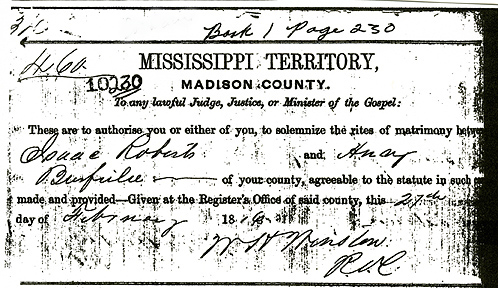 Book 1 Page 230
460
10230
MISSISSIPPI TERRITORY,
MADISON COUNTY.
To any lawful Judge, Justice, or Minister of the Gospel:
These are to authorise you or either of you, to solemnize the rites of matrimony betw
Isaac Roberts and Anay
of your county, agreeable to the statute in such
made and provided—Given at the Register's Office of said county, this 27th
day of February 181
W H Winston
R.O.C.